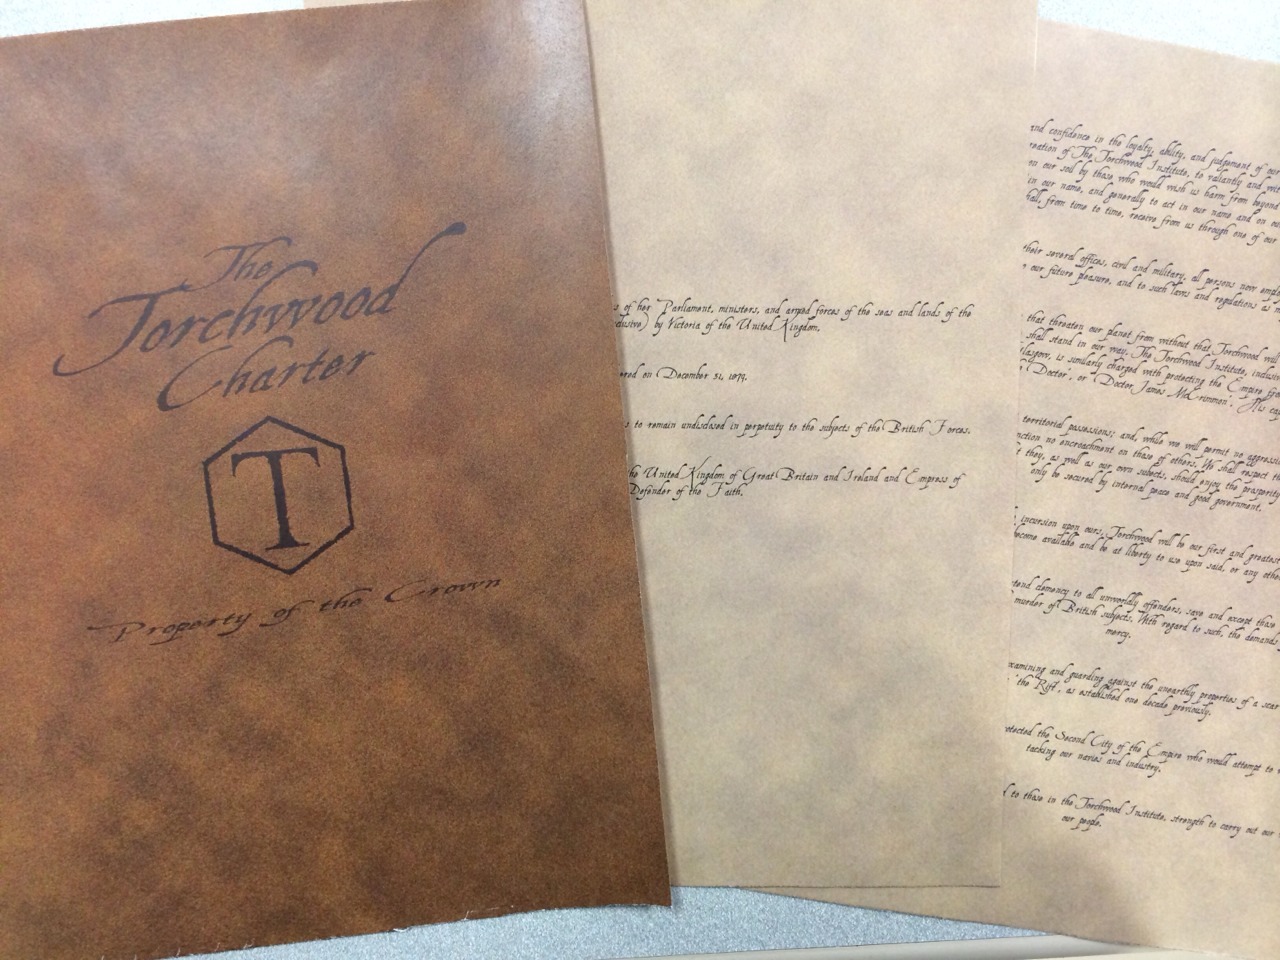 The
Torchwood
Charter
T
Property of the Crown
of her Parliament, ministers, and armed forces of the seas and lands of the
by Victoria of the United Kingdom.
on December 31, 1879.
to remain undisclosed in perpetuity to the subjects of the British Forces.
the United Kingdom of Great Britain and Ireland and Empress of
Defender of the Faith.
and confidence in the loyalty, ability, and judgement of our
of The Torchwood Institute, to valiantly and
on our soil by those who would wish us harm from beyond
in our name, and generally to act in our name and on our
from time to time, receive from us through one of our
their several offices, civil and military, all persons now
our future pleasure, and to such laws and regulations as
that threaten our planet from without that Torchwood will
shall stand in our way. The Torchwood Institute,
Glasgow, is similarly charged with protecting the Empire
"Doctor", or "Doctor James McCrimmon". His
territorial possessions; and, while we will permit no
no encroachment on those of others. We shall respect
they, as well as our own subects, should enjoy the prosperity
only be secured by internal peace and good government.
incursion upon ours, Torchwood will be our first and greatest
become available and be at liberty to use upon said, or any
clemency to all unworldly offenders, save and except those
murder of British subjects. With regard to such, the demands
mercy.
examining and guarding against the unearthly properties of a scar
'the Rift', as established one decade previously.
the Second City of the Empire who would attempt to
our navies and industry.
to those in the Torchwood Institute, strength to carry out our
our people.